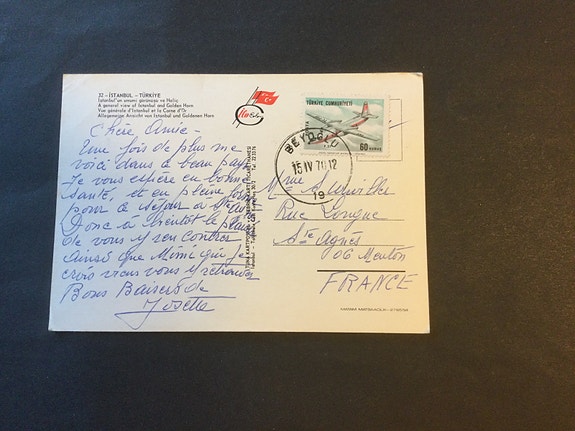 32 - İSTANBUL - TÜRKİYE
İstanbul'un umumi görünüşü ve Haliç
A general view of Istanbul and Golden Horn
Vue générale d'Istanbul et la Corne d'Or
Allegemeine Ansicht von Istanbul und Goldenen Horn
Chère Amie -
Une fois de plus me
voici dans ce beau pays
Je vous espère en bonne
santé, et en pleine
pour le séjour à Ste
Donc à bientôt le plaisir
de vous y rencontrer
ainsi que Mimi qui je
crois viens vous y retrouver
Bons Baisers de
Josette
TÜRKİYE CUMHURİYETİ
60 KURUŞ
BEYOĞLU
15 IV 70 12
19
Mme
Rue Longue
Ste Agnès
06 Menton
FRANCE